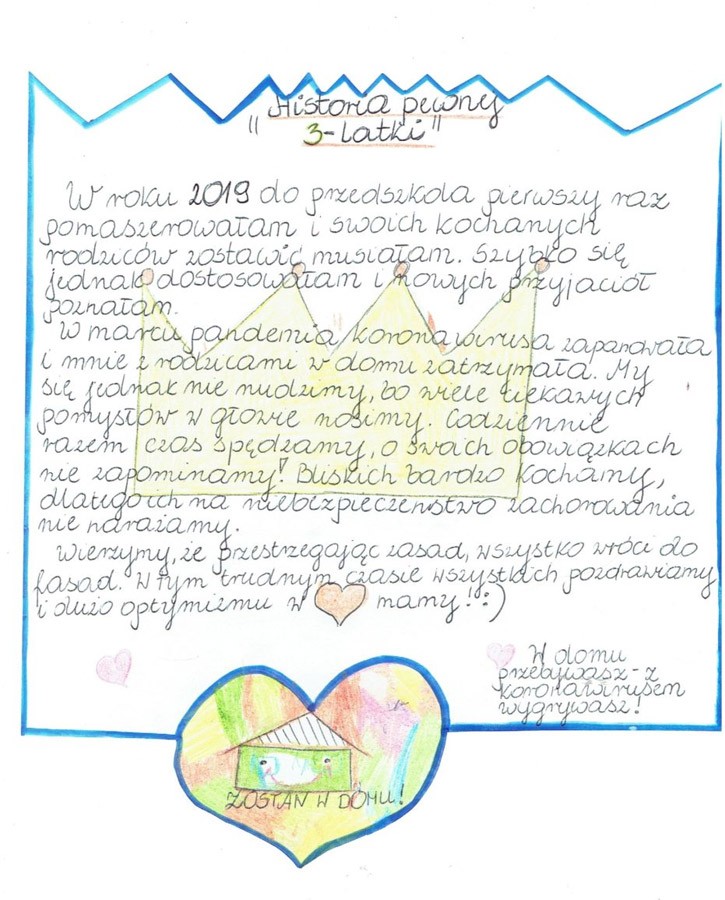 "Historia pewny
3-latki"
W roku 2019 do przedszkola pierwszy raz
pomaszerowałam i swoich kochanych
rodziców zostawić musiałam. Szybko się
jednak dostosowałam i nowych przyjaciół
poznałam.
W marcu pandemia koronawirusa zapanowała
i mnie z rodzicami w domu zatrzymała. My
się jednak nie nudzimy, bo wiele ciekawych
pomysłów w głowie nosimy. Codziennie
razem czas spędzamy, o swoich obowiązkach
nie zapominamy! Bliskich bardzo kochamy,
dlatego ich na niebezpieczeństwo zachorowania
nie narażamy.
Wierzymy, że przestrzegając zasad, wszystko wróci do
fasad. W tym trudnym czasie wszystkich pozdrawiamy
i dużo optymizmu w mamy! :)
W domu
przebywasz - z
koronawirusem
wygrywasz!
ZOSTAŃ W DOMU!